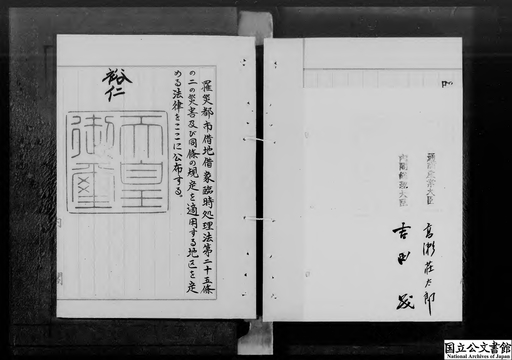 罹災都市借地借家臨時処理法第二十五條
の二の災害及び同條の規定を適用する地区を定
める法律をここに公布する。
裕仁
天皇
御璽
内閣総理大臣
吉田茂
国立公文書館
National Archives of Japan